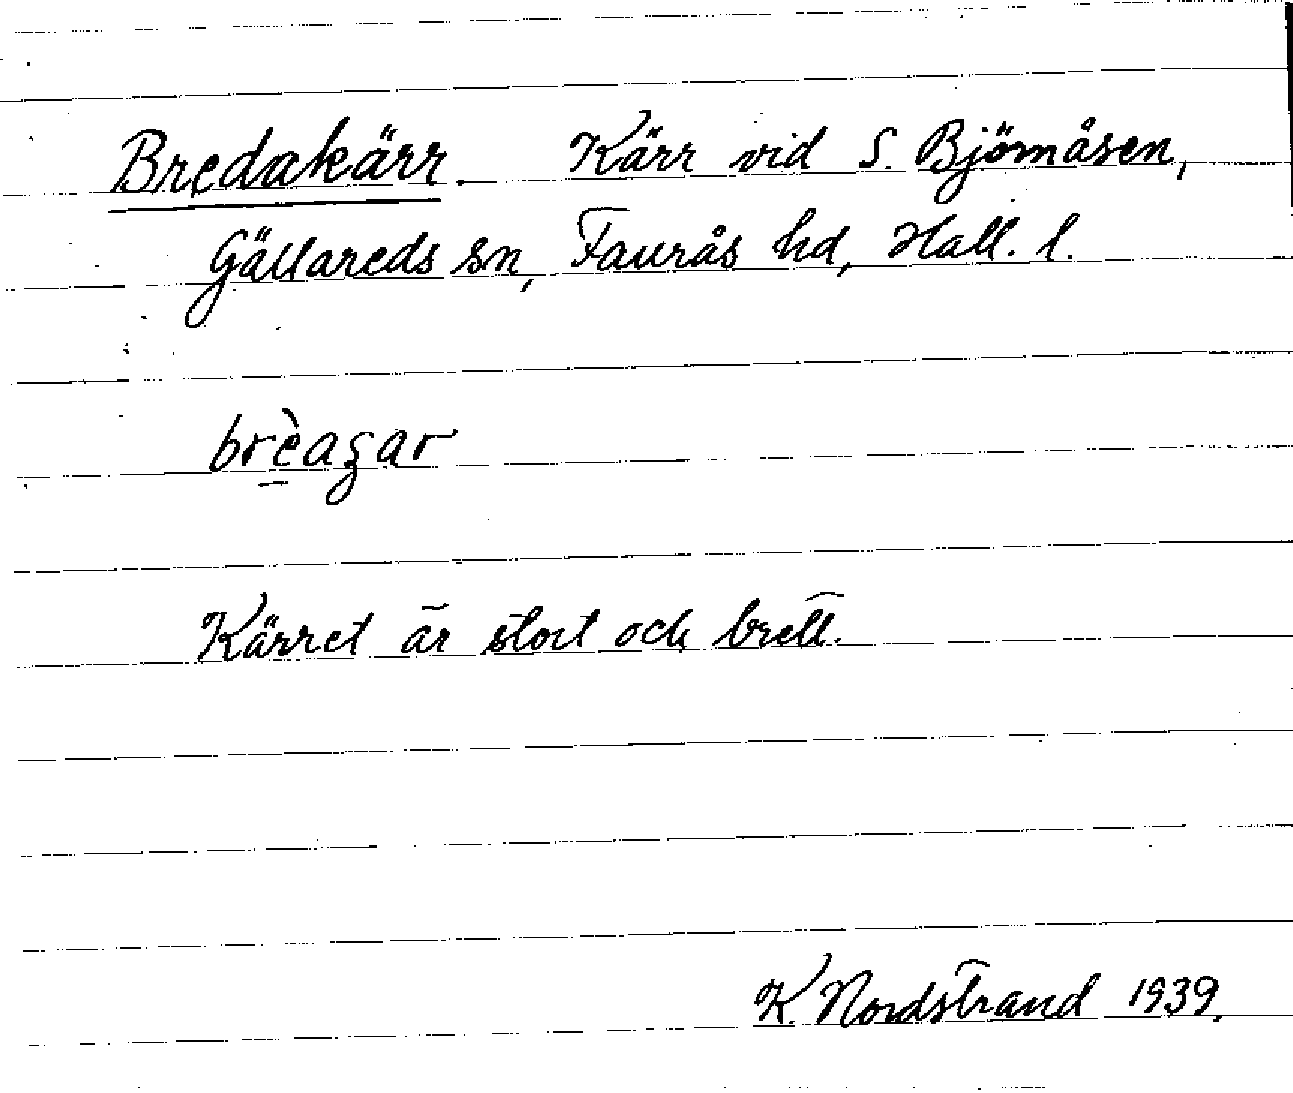 Bredakärr. Kärr vid S. Björnåsen,
Gällareds sn, Faurås hd, Hall. l.
brèaʒar
Kärret är stort och brett.
K. Nordstrand 1939.